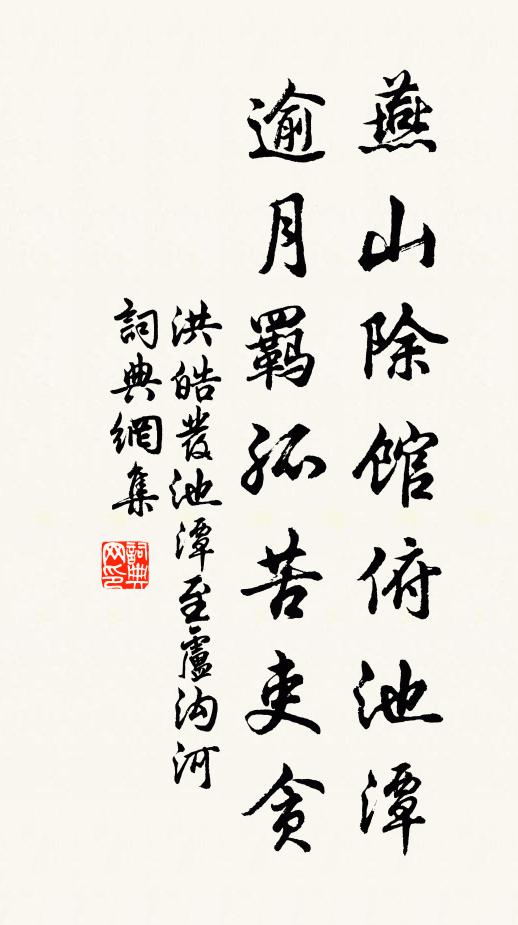 燕山除館俯池潭
逾月羈孤苦吏貪
洪皓發池潭至盧沟河
詞典網集
詞典网印